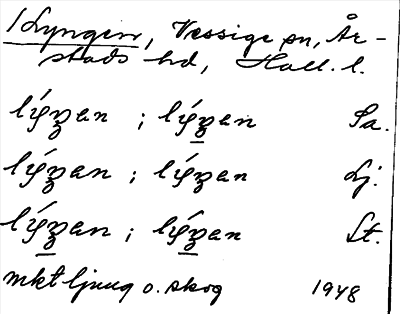 / Lyngen, Vessige sn, År-
stads hd, Hall. l.
lýŋan ; lýŋan Sa.
lýŋan ; lýŋan Lj.
lýŋan ; lýŋan St.
mkt ljung o. skog 1948